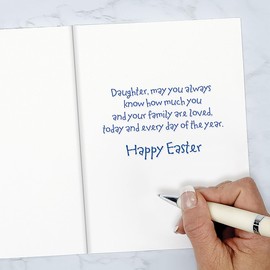 Daughter, may you always
know how much you
and your family are loved,
today and every day of the year.
Happy Easter